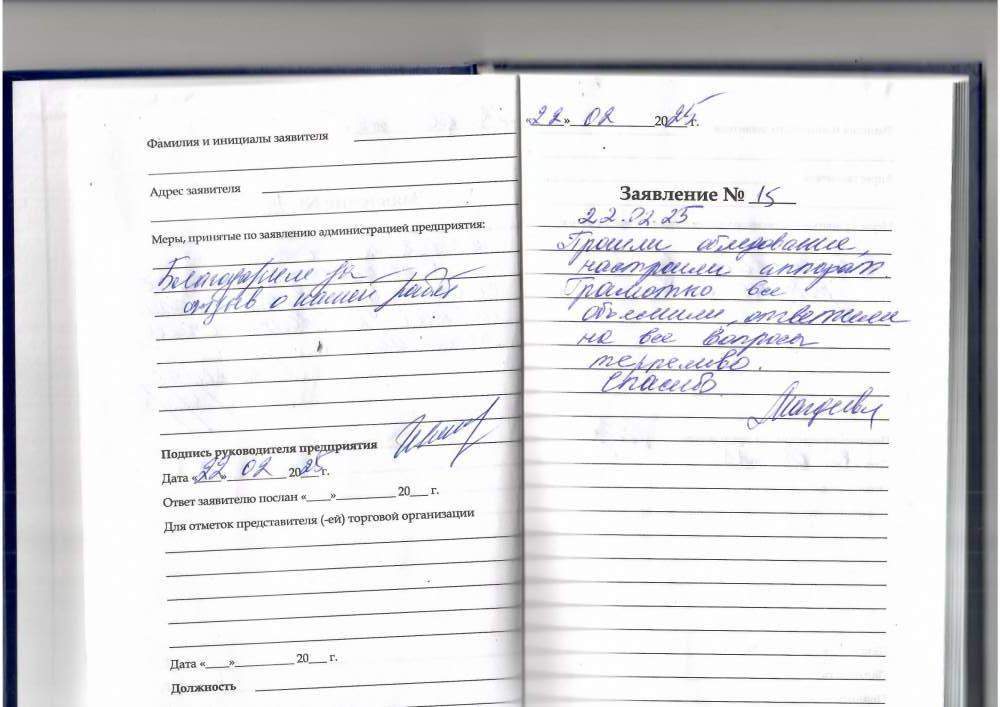 Фамилия и инициалы заявителя
Адрес заявителя
Меры, принятые по заявлению администрацией предприятия:
Благодарим за
отзыв о нашей работе
Подпись руководителя предприятия
Дата «22» 02 2025 г.
Ответ заявителю послан «___»__________ 20___ г.
Для отметок представителя (-ей) торговой организации
Дата «___»__________ 20___ г.
Должность
«22» 02 2025 г.
Заявление № 15
22.02.25
Прошли обследование,
настроили аппарат.
Грамотно все
объяснили, ответили
на все вопросы
терпеливо.
Спасибо.